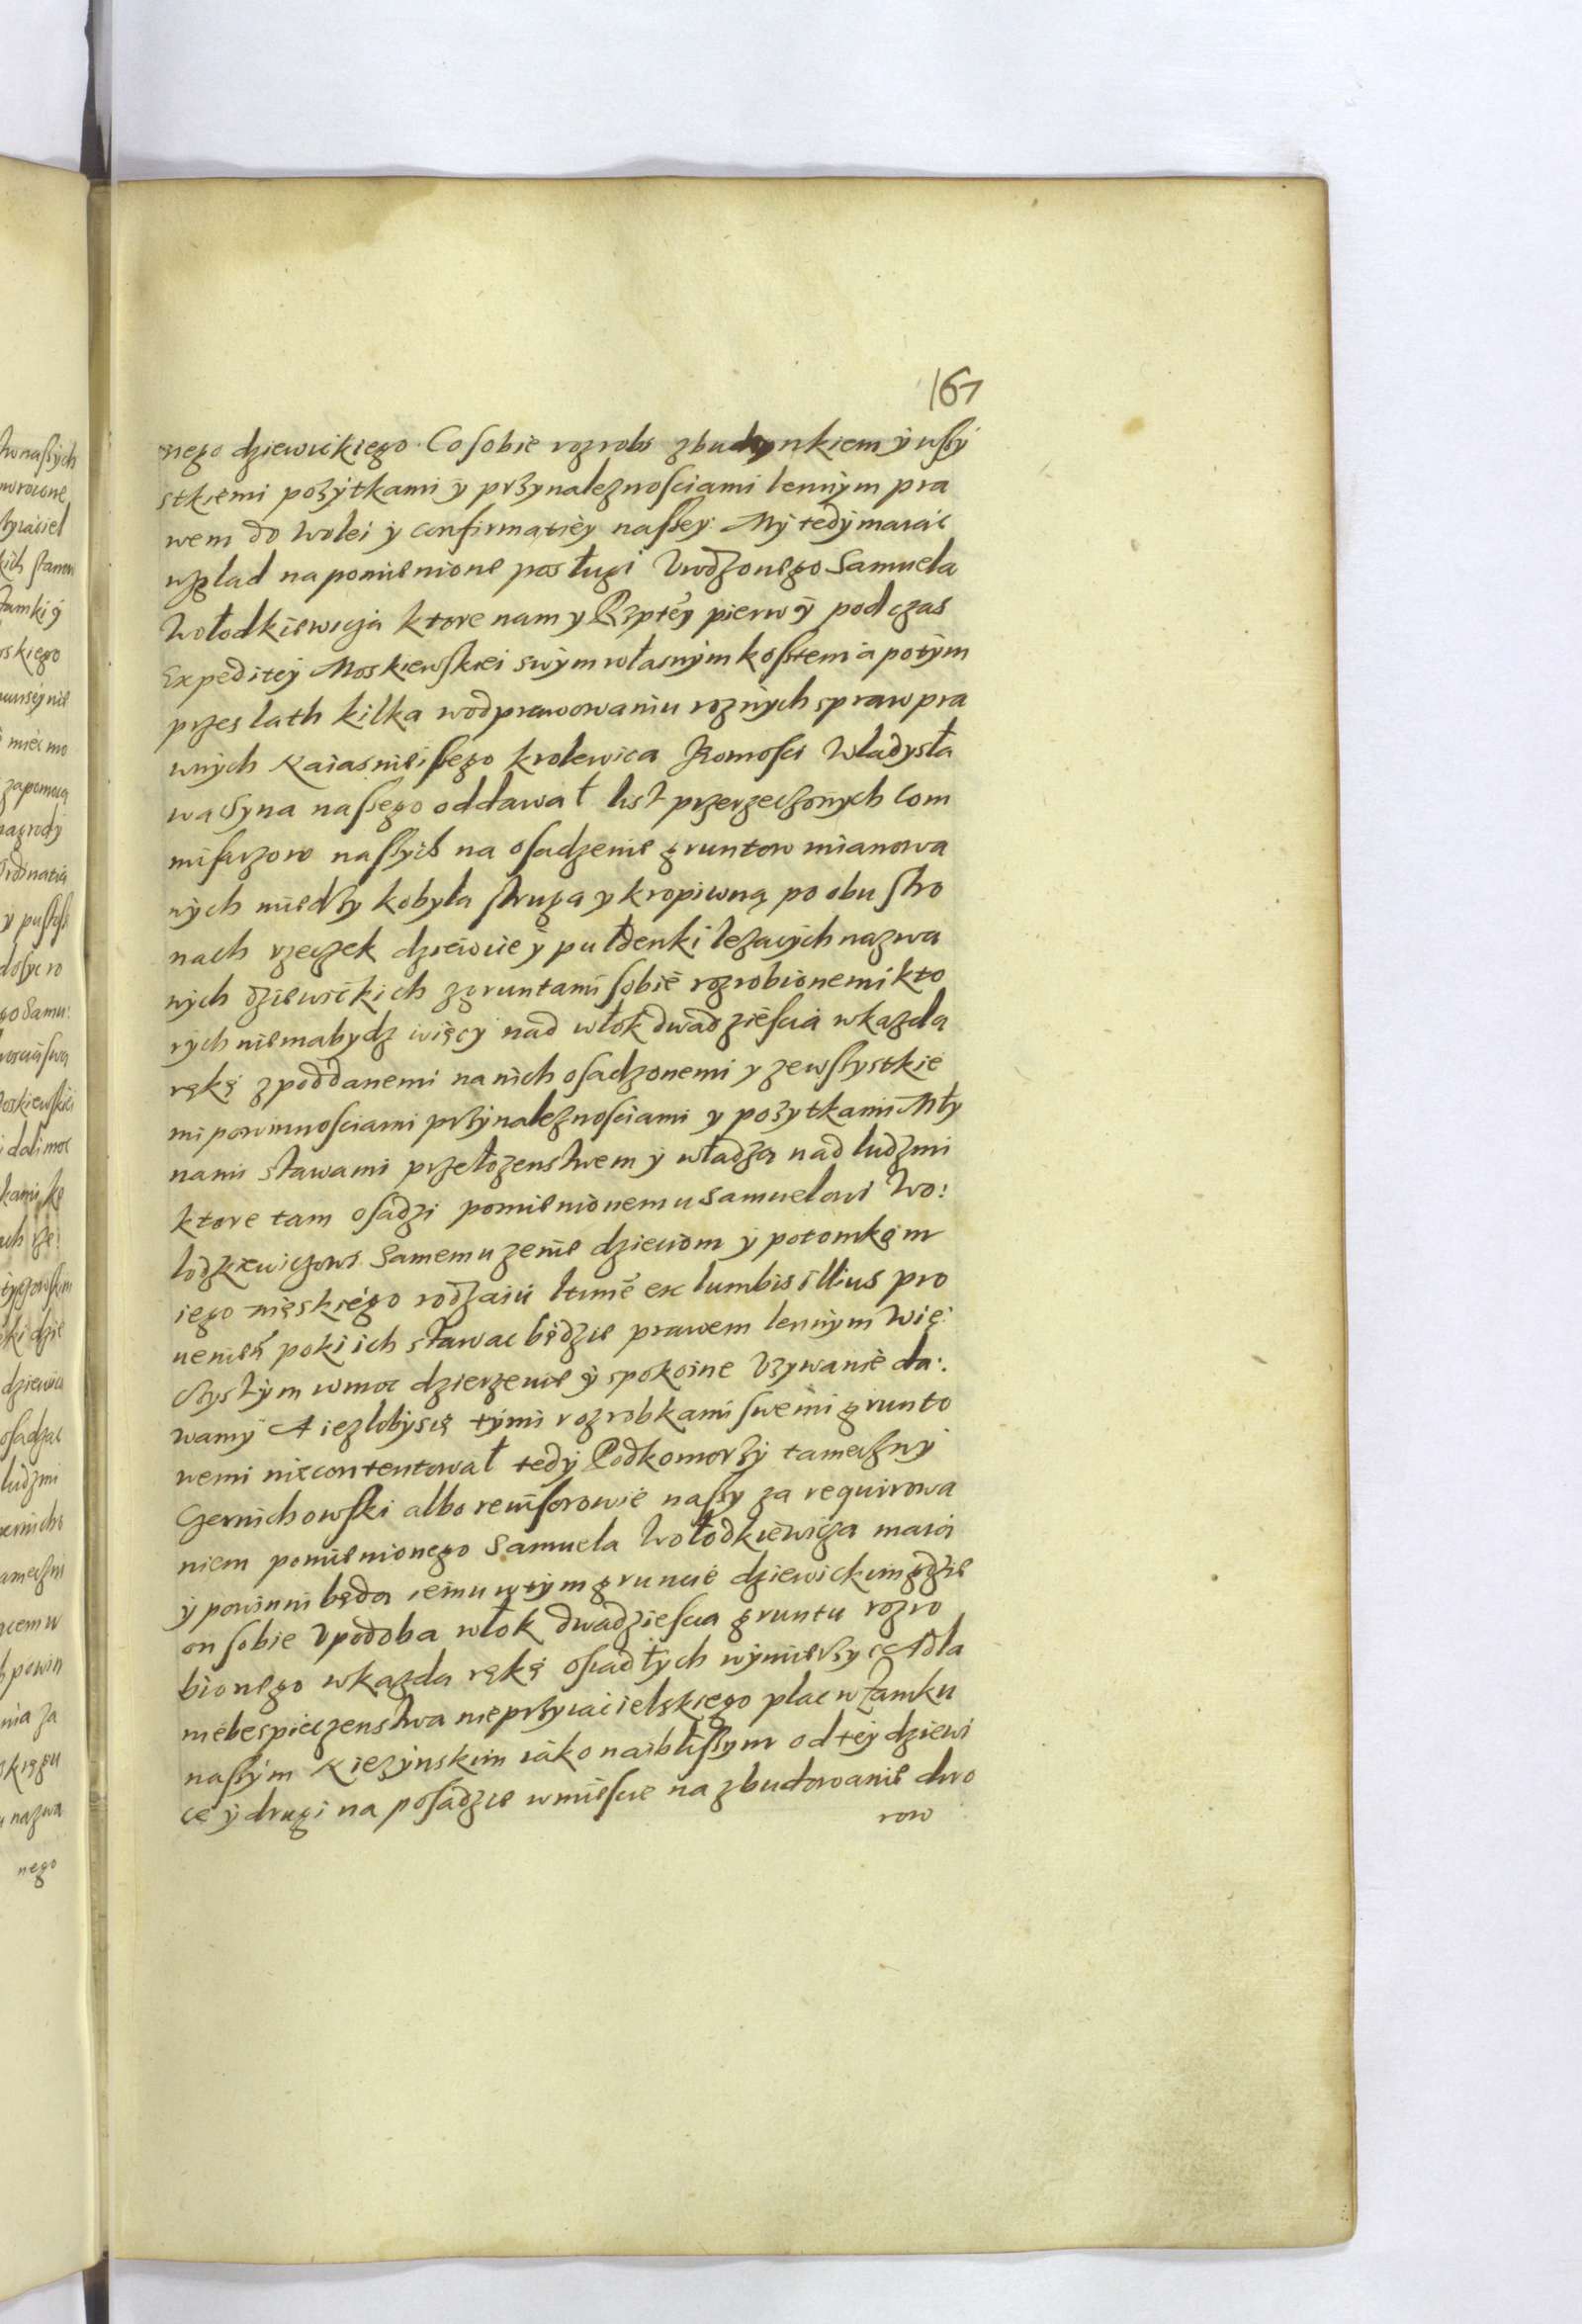 167
nego dziewickiego. Co sobie rozrobi z budynkiem ÿ wssÿ
stkiemi pozÿtkami ÿ przÿnaleznosciami lennÿm pra
wem do wolei ÿ confirmatieÿ nasseÿ. Mÿ tedÿ maiąc
wzglad na pomienione posługi Urodzonego Samuela
Wołodkiewicza ktore nam y Rzpteÿ pierwÿ podczas
Expediteÿ Moskiewskiei swÿm własnÿm kosstem a potÿm
przes lath kilka w odprawowaniu roznÿch spraw pra
wnÿch Naiasnieissego krolewica Jkomosci Władysła
wa Syna nassego oddawał list przerzeczonÿch Com
misarzow nassÿch na osadzenie gruntow mianowa
nÿch miedzÿ kobyła struga y kropiwną po obu stro
nach rzeczek dziewice ÿ pułdenki lezacÿch nazwa
nÿch dziewickich z gruntami sobie rozrobionemi kto
rÿch niema bydz więcÿ nad włok dwadziescia w kazda
rękę z poddanemi na nich osadzonemi y ze wssystkie
mi powinnosciami przÿnaleznosciami y pozytkami Mły
nami stawami przełozenstwem ÿ władza nad ludzmi
ktore tam osadzi pomienionemu Samuelowi Wo:
lodzkiewiczowi Samemu zenie dzieciom ÿ potomkom
iego męskiego rodzaiu ltimē ex lumbis illius pro
ueniēn poki ich stawac będzie prawem lennÿm Wie:
cżystÿm w moc dzierzenie ÿ spokoine Uzywanie da:
wamÿ A iezlobÿ się tÿmi rozrobkami swemi grunto
wemi nie contentował tedÿ Podkomorzÿ tameczny
Czernichowski albo reuisorowie nassy za requirowa
niem pomienionego Samuela Wołodkiewicza maią
ÿ powinni będa iemu w tÿm gruncie dziewickim gdzie
on sobie Upodoba włok dwadziescia gruntu rozro
bionego w kazda rękę osiadłych wÿmierzÿc A dla
niebespieczenstwa nieprzyiacielskiego plac w Zamku
nassÿm Niezÿnskim iako naiblissym od teÿ dziewi
ce ÿ drugi na posadzie w miescie na zbudowanie dwo
row